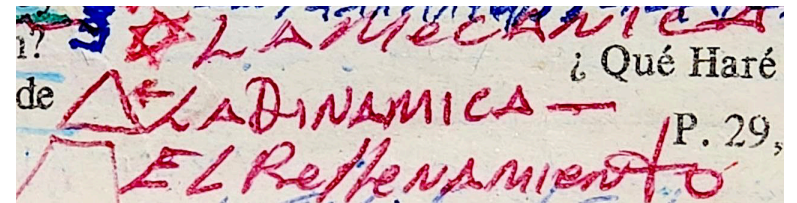 n?
LA MeCANICA
¿ Qué Haré
de
LA DINAMICA —
P. 29,
EL RellenAMIenTO